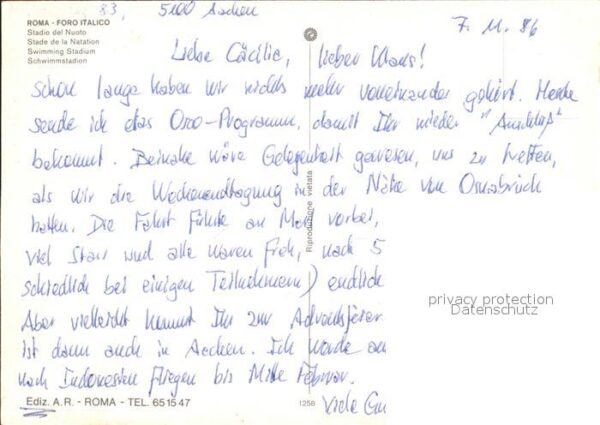 83, 5100 Aachen
ROMA - FORO ITALICO
Stadio del Nuoto
Stade de la Natation
Swimming Stadium
Schwimmstadion
7. 11. 86
Liebe Cäcilie, lieber Klaus!
schon lange haben wir nichts mehr voneinander gehört. Heute
sende ich das Programm, damit Ihr wieder "Anschluß"
bekommt. Beinahe wäre Gelegenheit gewesen, uns zu treffen,
als wir die Wochenendtagung in der Nähe von Osnabrück
hatten. Die Fahrt führte an vorbei,
viel Stau und alle waren froh, nach 5
schiedlich bei einigen Teilnehmern) endlich
Aber vielleicht kommt Ihr zur Adventsfeier
ist dann auch in Aachen. Ich werde am
nach Indonesien fliegen bis Mitte Februar.
Viele
Riproduzione vietata
privacy protection
Datenschutz
Ediz. A.R. - ROMA - TEL. 651547
125B